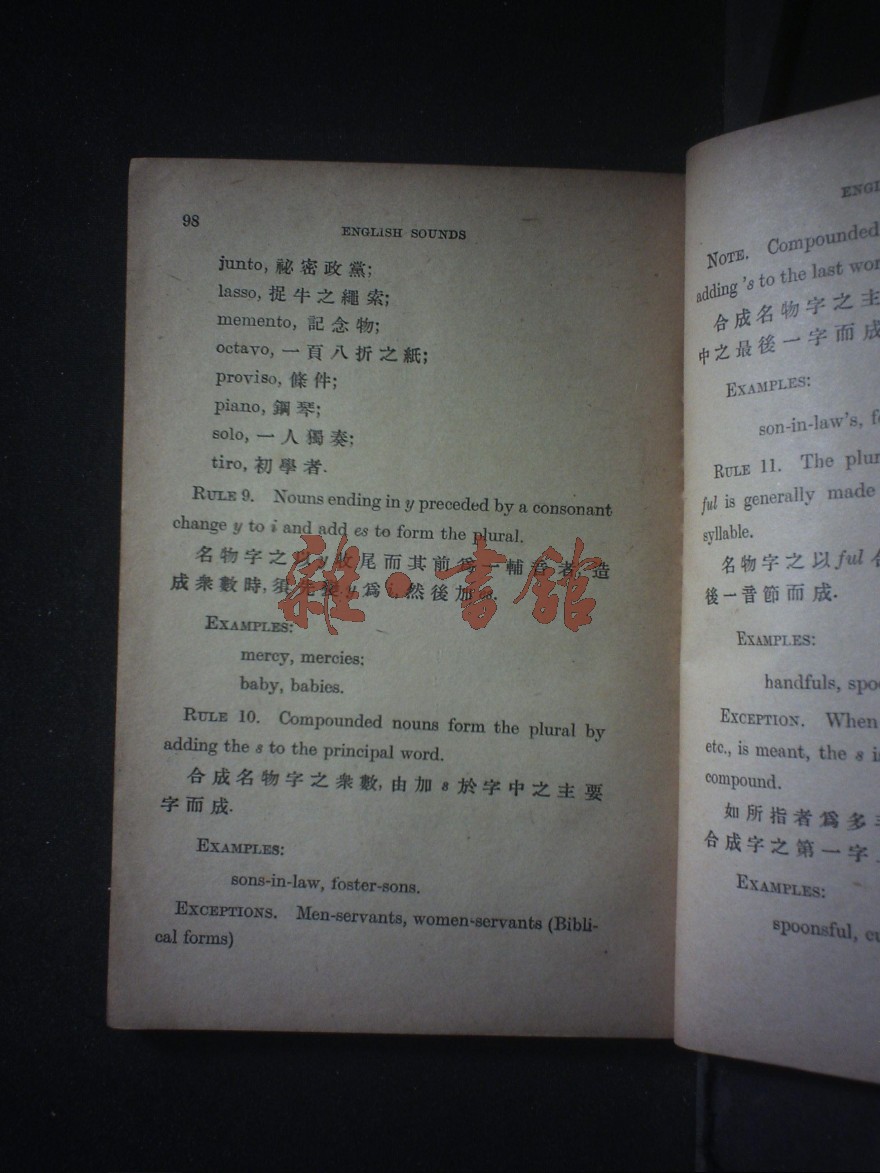 98
ENGLISH SOUNDS
junto, 祕密政黨;
lasso, 捉牛之繩索;
memento, 記念物;
octavo, 一百八折之紙;
proviso, 條件;
piano, 鋼琴;
solo, 一人獨奏;
tiro, 初學者.
RULE 9. Nouns ending in y preceded by a consonant
change y to i and add es to form the plural.
名物字之以 y 收尾而其前爲一輔音者, 造
成衆數時, 須先變 y 爲 然後加 es.
EXAMPLES:
mercy, mercies;
baby, babies.
RULE 10. Compounded nouns form the plural by
adding the s to the principal word.
合成名物字之衆數, 由加 s 於字中之主要
字而成.
EXAMPLES:
sons-in-law, foster-sons.
EXCEPTIONS. Men-servants, women-servants (Bibli-
cal forms)
雜·書館
NOTE. Compounded
adding 's to the last
合成名物字之主
中之最後一字而成
EXAMPLES:
son-in-law's,
RULE 11. The
ful is generally made
syllable.
名物字之以 ful
後一音節而成.
EXAMPLES:
handfuls,
EXCEPTION. When
etc., is meant, the s
compound.
如所指者爲多
合成字之第一字
EXAMPLES:
spoonsful,